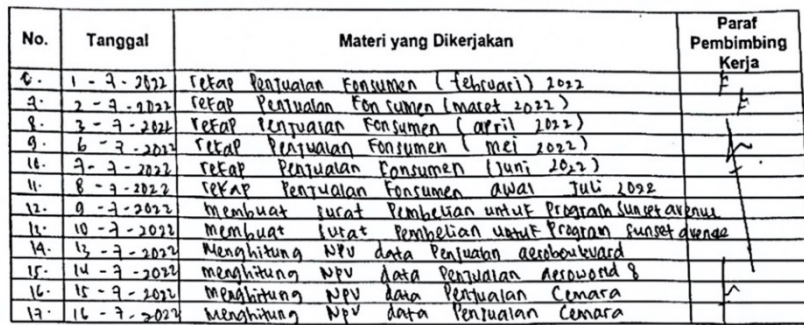 No. Tanggal Materi yang Dikerjakan Paraf Pembimbing Kerja
6. 1 - 7 - 2022 rekap Penjualan Konsumen (februari) 2022
7. 2 - 7 - 2022 rekap Penjualan Konsumen (maret 2022)
8. 3 - 7 - 2022 rekap Penjualan Konsumen (april 2022)
9. 6 - 7 - 2022 rekap Penjualan Konsumen (mei 2022)
10. 7 - 7 - 2022 rekap Penjualan Konsumen (Juni 2022)
11. 8 - 7 - 2022 rekap Penjualan Konsumen awal Juli 2022
12. 9 - 7 - 2022 membuat surat Pembelian untuk Program sunset avenue
13. 10 - 7 - 2022 membuat surat Pembelian untuk Program sunset avenue
14. 13 - 7 - 2022 Menghitung NPV data Penjualan aeroboulevard
15. 14 - 7 - 2022 menghitung NPV data Penjualan aeroworld 8
16. 15 - 7 - 2022 menghitung NPV data Penjualan Cemara
17. 16 - 7 - 2022 menghitung NPV data Penjualan Cemara